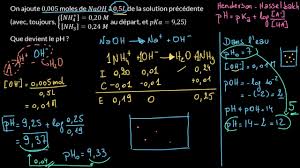 On ajoute 0,005 moles de NaOH à 0,5L de la solution précédente
(avec, toujours, {[NH₄⁺] = 0,20 M
[NH₃] = 0,24 M au départ, et pKa = 9,25)
Que devient le pH ?
NaOH → Na⁺ + OH⁻
NH₄⁺ + OH⁻ → NH₃ + H₂O
[OH⁻] = 0,005 mol
0,5 L
= 0,01 M
I 0,20 0,01 0,24
C -0,01 -0,01 +0,01
E 0,19 0 0,25
pH = 9,25 + log 0,25
0,19
pH = 9,37
pH₀ = 9,33
0,04
Henderson - Hasselbalch
pH = pKa + log [A⁻]
[HA]
Dans l'eau
pH₀ = 7
[OH⁻] = 0,01 M
pOH = -log 10⁻²
= 2
pH + pOH = 14
pH = 14 - 2 = 12
5